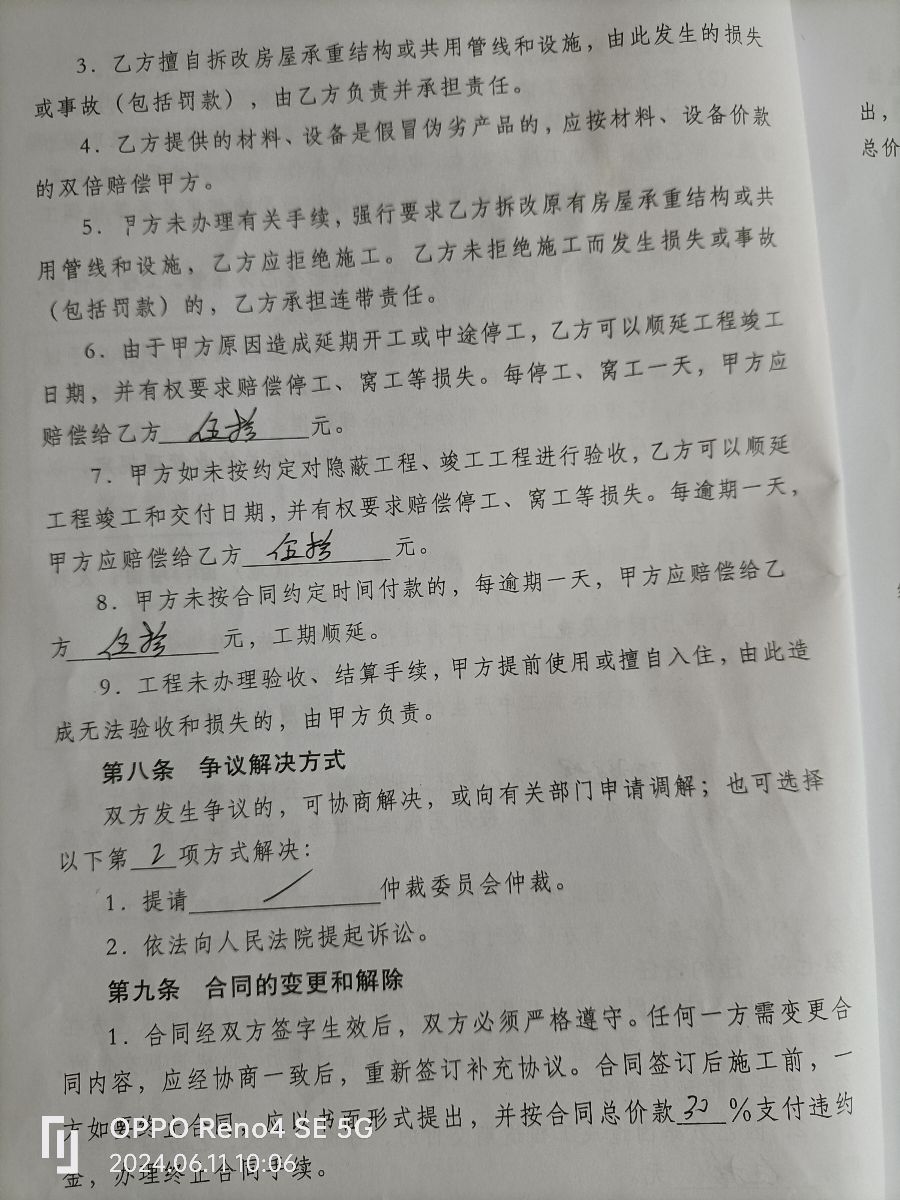 3. 乙方擅自拆改房屋承重结构或共用管线和设施，由此发生的损失
或事故（包括罚款），由乙方负责并承担责任。
4. 乙方提供的材料、设备是假冒伪劣产品的，应按材料、设备价款
的双倍赔偿甲方。
5. 甲方未办理有关手续，强行要求乙方拆改原有房屋承重结构或共
用管线和设施，乙方应拒绝施工。乙方未拒绝施工而发生损失或事故
（包括罚款）的，乙方承担连带责任。
6. 由于甲方原因造成延期开工或中途停工，乙方可以顺延工程竣工
日期，并有权要求赔偿停工、窝工等损失。每停工、窝工一天，甲方应
赔偿给乙方 伍拾 元。
7. 甲方如未按约定对隐蔽工程、竣工工程进行验收，乙方可以顺延
工程竣工和交付日期，并有权要求赔偿停工、窝工等损失。每逾期一天，
甲方应赔偿给乙方 伍拾 元。
8. 甲方未按合同约定时间付款的，每逾期一天，甲方应赔偿给乙
方 伍拾 元，工期顺延。
9. 工程未办理验收、结算手续，甲方提前使用或擅自入住，由此造
成无法验收和损失的，由甲方负责。
第八条 争议解决方式
双方发生争议的，可协商解决，或向有关部门申请调解；也可选择
以下第 2 项方式解决：
1. 提请 / 仲裁委员会仲裁。
2. 依法向人民法院提起诉讼。
第九条 合同的变更和解除
1. 合同经双方签字生效后，双方必须严格遵守。任何一方需变更合
同内容，应经协商一致后，重新签订补充协议。合同签订后施工前，一
方如要终止合同，应以书面形式提出，并按合同总价款 30 %支付违约
金，办理终止合同手续。
出，
总价
OPPO Reno4 SE 5G
2024.06.11 10:06